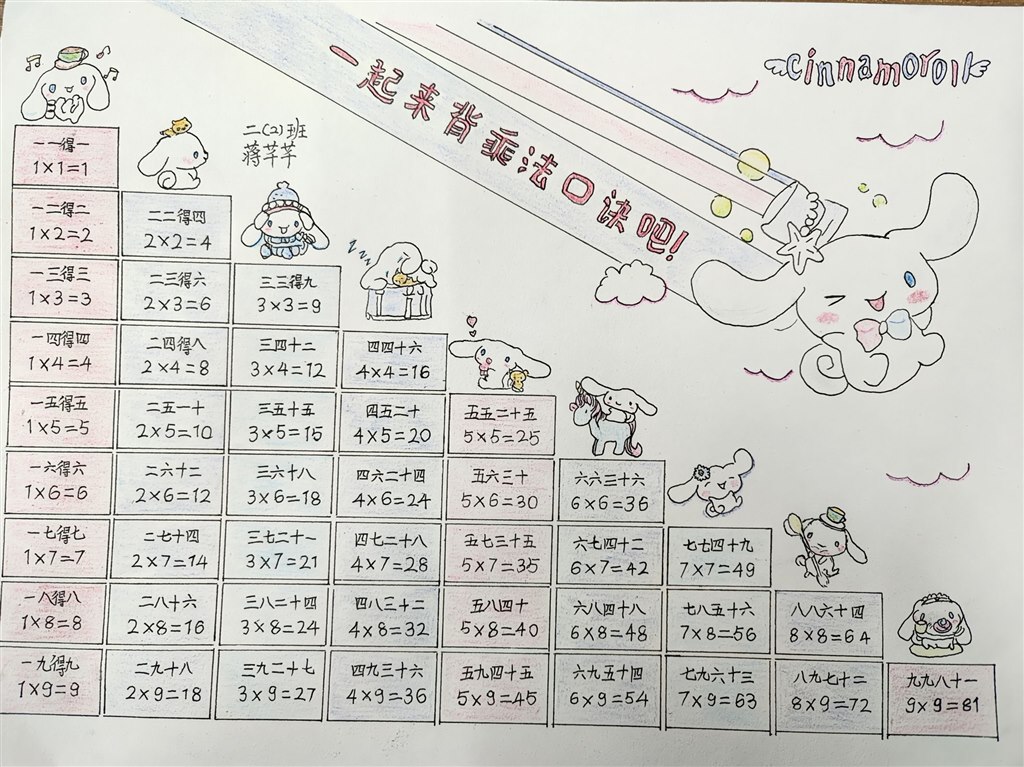 cinnamoroll
一起来背乘法口诀吧!
二(2)班
蒋芊芊
一一得一
1×1=1
一二得二
1×2=2
二二得四
2×2=4
一三得三
1×3=3
二三得六
2×3=6
三三得九
3×3=9
一四得四
1×4=4
二四得八
2×4=8
三四十二
3×4=12
四四十六
4×4=16
一五得五
1×5=5
二五一十
2×5=10
三五十五
3×5=15
四五二十
4×5=20
五五二十五
5×5=25
一六得六
1×6=6
二六十二
2×6=12
三六十八
3×6=18
四六二十四
4×6=24
五六三十
5×6=30
六六三十六
6×6=36
一七得七
1×7=7
二七十四
2×7=14
三七二十一
3×7=21
四七二十八
4×7=28
五七三十五
5×7=35
六七四十二
6×7=42
七七四十九
7×7=49
一八得八
1×8=8
二八十六
2×8=16
三八二十四
3×8=24
四八三十二
4×8=32
五八四十
5×8=40
六八四十八
6×8=48
七八五十六
7×8=56
八八六十四
8×8=64
一九得九
1×9=9
二九十八
2×9=18
三九二十七
3×9=27
四九三十六
4×9=36
五九四十五
5×9=45
六九五十四
6×9=54
七九六十三
7×9=63
八九七十二
8×9=72
九九八十一
9×9=81